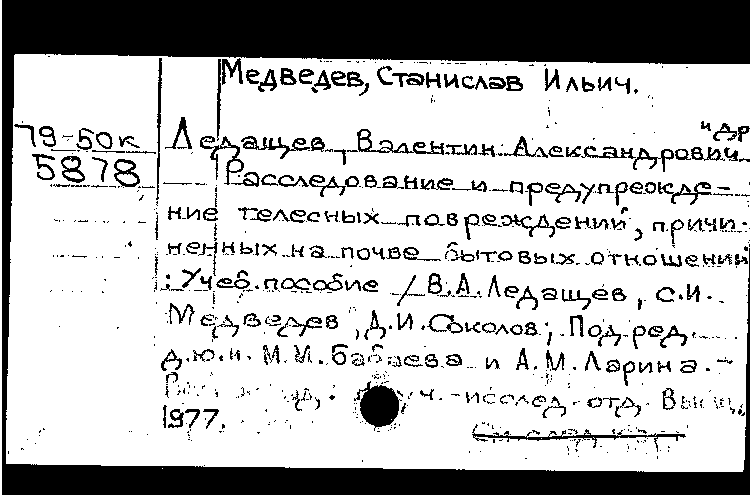 Медведев, Станислав Ильич.
и др
79-50к Ледащев, Валентин Александрович
5878 Расследование и предупрежде-
ние телесных повреждений, причи-
ненных на почве бытовых отношений
: Учеб. пособие / В.А. Ледащев, С.И.
Медведев, Д.И. Соколов; Под ред.
д.ю.н. М.М. Бабаева и А.М. Ларина. -
-исслед. отд,
1977.